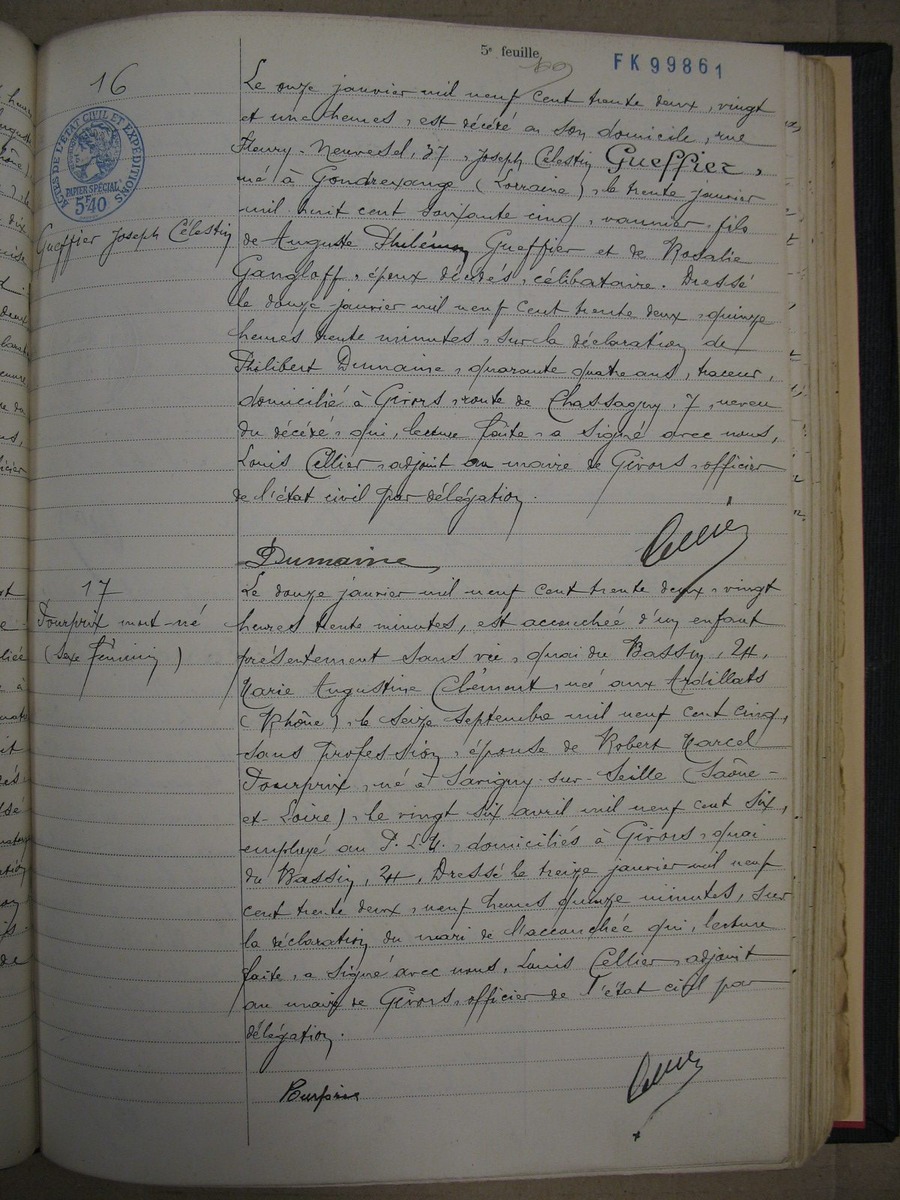 5e feuille
FK 99861
16
ACTES DE L'ÉTAT CIVIL ET EXPÉDITIONS
PAPIER SPÉCIAL
5F40
Gueffier Joseph Célestin
Le onze janvier mil neuf cent trente deux, vingt
et une heures, est décédé en son domicile, rue
Fleury-Neuvesel, 37, Joseph Célestin Gueffier,
né à Gondrexange (Lorraine), le trente janvier
mil huit cent soixante cinq, vannier, fils
de Auguste Philémon Gueffier et de Rosalie
Gangloff, époux décédés, célibataire. Dressé
le douze janvier mil neuf cent trente deux, quinze
heures trente minutes, sur la déclaration de
Philibert Dumaine, quarante quatre ans, traceur,
domicilié à Givors, route de Chassagny, 7, neveu
du décédé, qui, lecture faite, a signé avec nous,
Louis Cellier, adjoint au maire de Givors, officier
de l'état civil par délégation.
Dumaine
Cellier
17
Fourprix mort-né
(sexe féminin)
Le douze janvier mil neuf cent trente deux, vingt
heures trente minutes, est accouchée d'un enfant
présentement sans vie, quai du Bassin, 24,
Marie Augustine Clément, née aux Ardillats
(Rhône), le seize septembre mil neuf cent cinq,
sans profession, épouse de Robert Marcel
Fourprix, né à Savigny-sur-Seille (Saône-
et-Loire), le vingt six avril mil neuf cent six,
employé au P.L.M., domiciliés à Givors, quai
du Bassin, 24. Dressé le treize janvier mil neuf
cent trente deux, neuf heures quinze minutes, sur
la déclaration du mari de l'accouchée qui, lecture
faite, a signé avec nous, Louis Cellier, adjoint
au maire de Givors, officier de l'état civil par
délégation.
Cellier